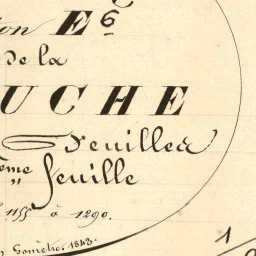 on E 6
de la
UCHE
Feuilles
ème feuille
1155 à 1290.
Géomètre. 1843.
1